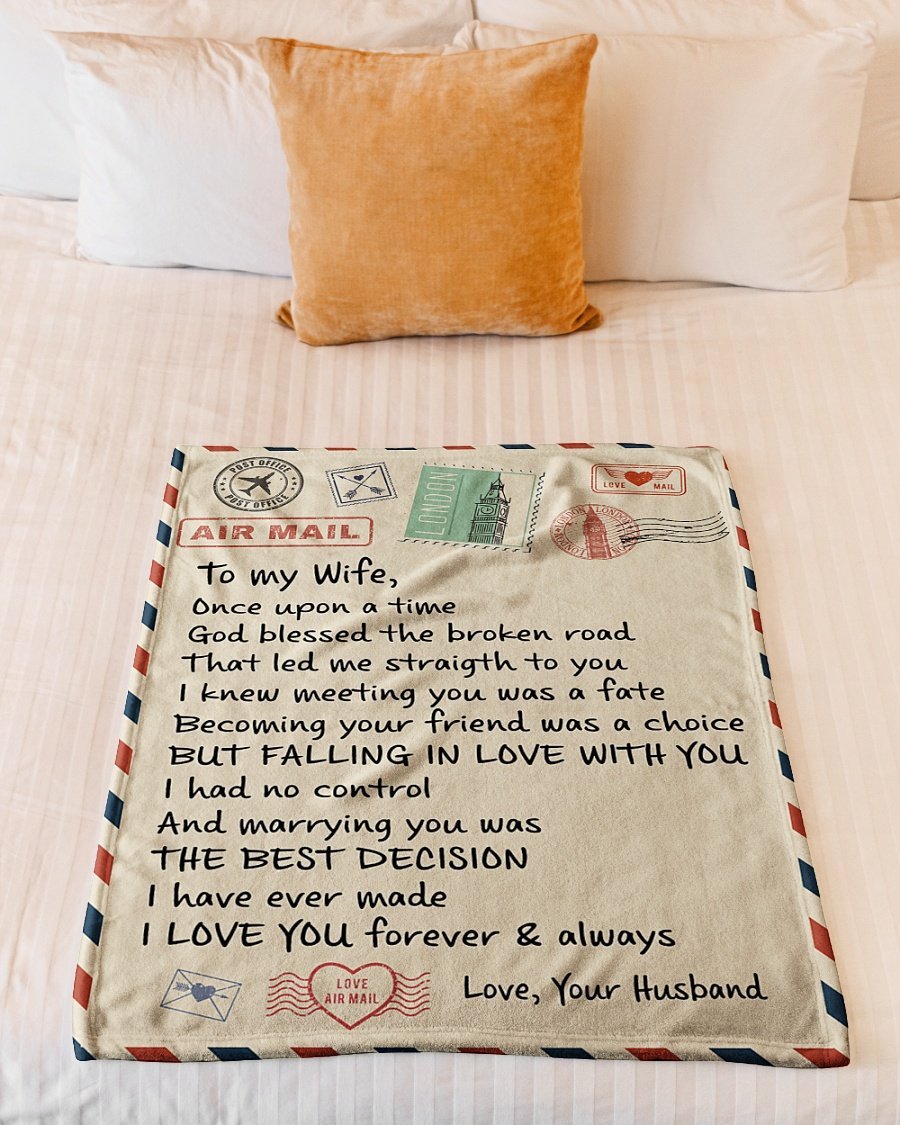 POST OFFICE
POST OFFICE
LONDON
LOVE MAIL
LONDON LONDON
LONDON
AIR MAIL
To my Wife,
Once upon a time
God blessed the broken road
That led me straigth to you
I knew meeting you was a fate
Becoming your friend was a choice
BUT FALLING IN LOVE WITH YOU
I had no control
And marrying you was
THE BEST DECISION
I have ever made
I LOVE YOU forever & always
LOVE
AIR MAIL
Love, Your Husband